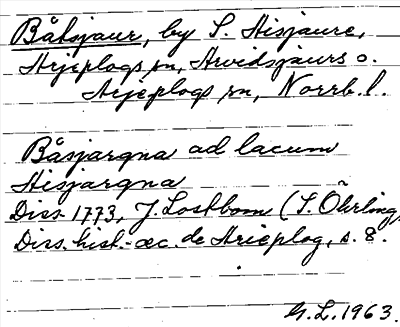 Båtsjaur, by S. Hisjaure,
Arjeplogs sn, Arvidsjaurs o.
Arjeplogs sn, Norrb. l.
Båsjargna ad lacum
Hisjargna
Diss. 1773, J. Lostbom (S. Öhrling,
Dis. hist.-œc. de Arieplog, s. 8.
G. L. 1963.